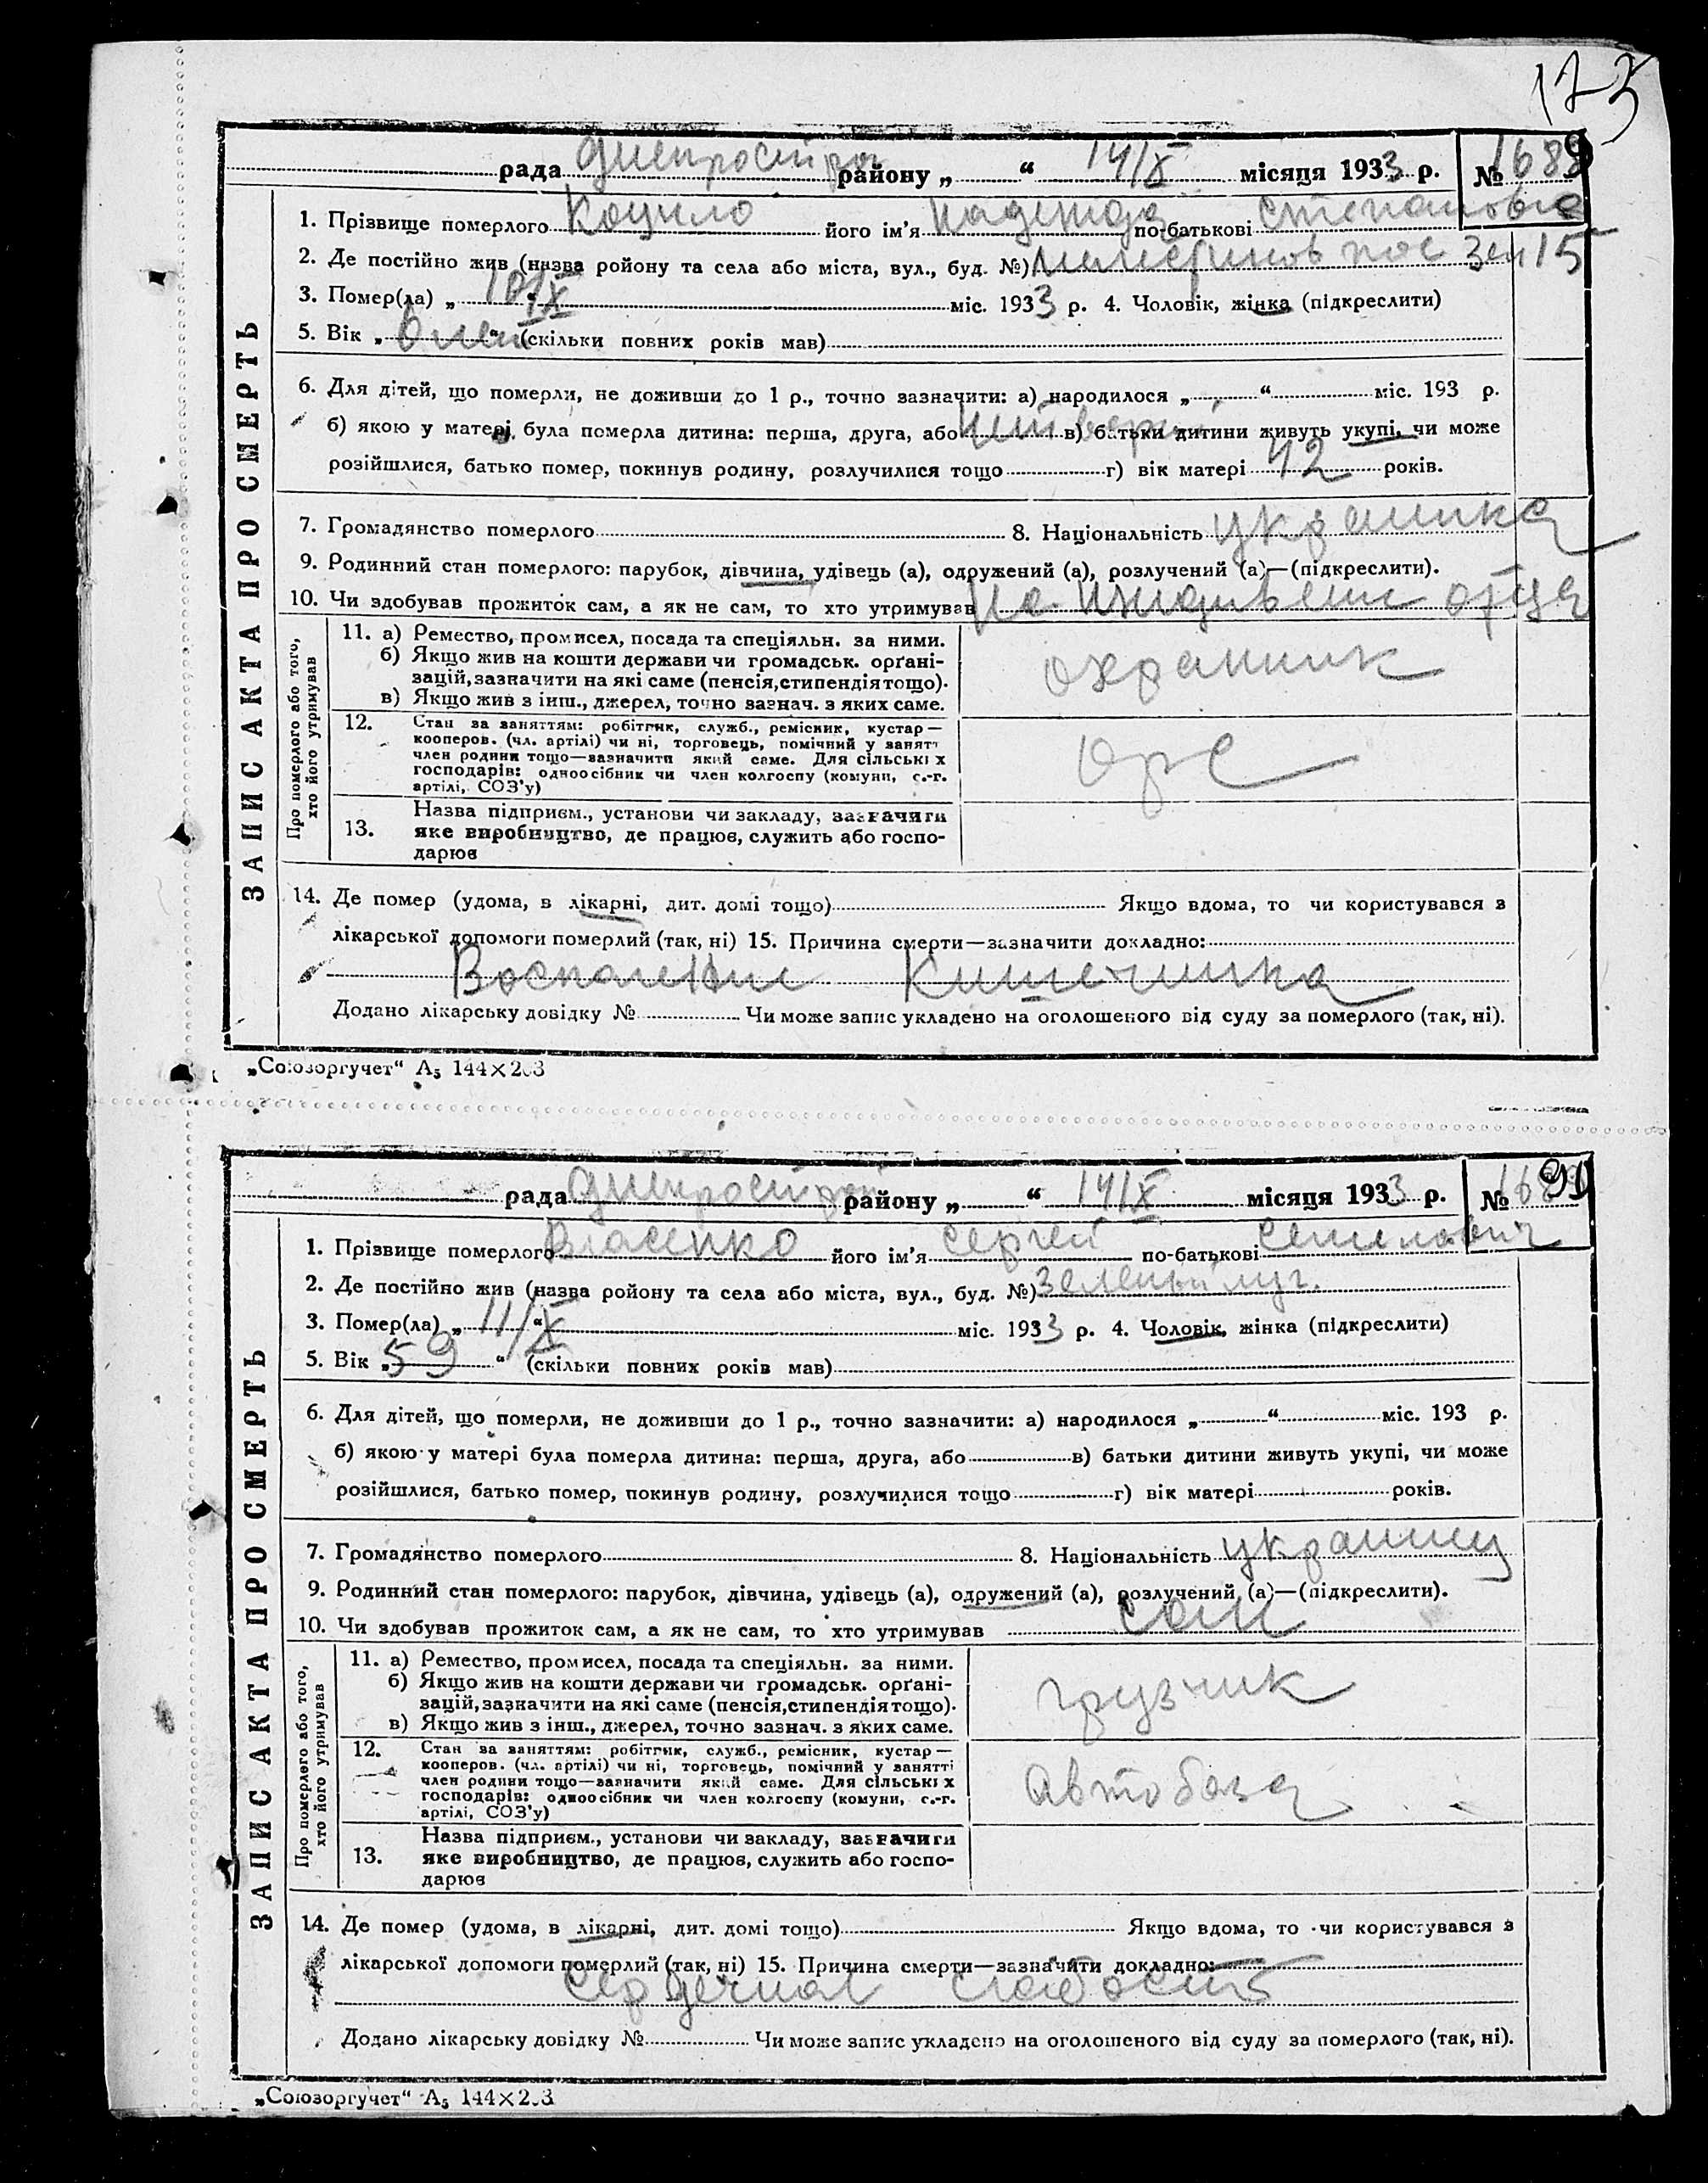 173
рада Днепростр района „ “ 14/X місяця 1933 р. № 1689
1. Прізвище померлого Коцило його ім’я Надежда по-батькові Степановна
2. Де постійно жив (назва ройону та села або міста, вул., буд. №) пос Зем 15
3. Помер(ла) „ 10/IX “ міс. 1933 р. 4. Чоловік, жінка (підкреслити)
5. Вік „ 6 мес “ (скільки повних років мав)
6. Для дітей, що померли, не доживши до 1 р., точно зазначити: а) народилося „ “ міс. 193 р.
б) якою у матері була померла дитина: перша, друга, або в) батьки дитини живуть укупі, чи може
розійшлися, батько помер, покинув родину, розлучилися тощо г) вік матері 42 років.
7. Громадянство померлого 8. Національність украинка
9. Родинний стан померлого: парубок, дівчина, удівець (а), одружений (а), розлучений (а)—(підкреслити).
10. Чи здобував прожиток сам, а як не сам, то хто утримував на иждивении отца
ЗАПИС АКТА ПРО СМЕРТЬ
Про померлого або того, хто його утримував
11. а) Ремество, промисел, посада та спеціяльн. за ними.
б) Якщо жив на кошти держави чи громадськ. орґані-
зацій, зазначити на які саме (пенсія, стипендія тощо).
в) Якщо жив з інш., джерел, точно зазнач. з яких саме.
охранник
12. Стан за заняттям: робітник, служб., ремісник, кустар—
кооперов. (чл. артілі) чи ні, торговець, помічний у занятт
член родини тощо—зазначити який саме. Для сільських
господарів: одноосібник чи член колгоспу (комуни, с.-г.
артілі, СОЗ’у)
орс
13. Назва підприєм., установи чи закладу, зазначити
яке виробництво, де працює, служить або госпо-
дарює
14. Де помер (удома, в лікарні, дит. домі тощо) Якщо вдома, то чи користувався з
лікарської допомоги померлий (так, ні) 15. Причина смерти—зазначити докладно:
Воспаление Кишечника
Додано лікарську довідку № Чи може запис укладено на оголошеного від суду за померлого (так, ні).
„Союзоргучет“ А5 144×203
рада Днепростр району „ “ 14/X місяця 1933 р. № 1690
1. Прізвище померлого Власенко його ім’я Сергей по-батькові Семенович
2. Де постійно жив (назва ройону та села або міста, вул., буд. №) Зеленый луг.
3. Помер(ла) „ 11/X “ міс. 1933 р. 4. Чоловік, жінка (підкреслити)
5. Вік „ 59 “ (скільки повних років мав)
6. Для дітей, що померли, не доживши до 1 р., точно зазначити: а) народилося „ “ міс. 193 р.
б) якою у матері була померла дитина: перша, друга, або в) батьки дитини живуть укупі, чи може
розійшлися, батько помер, покинув родину, розлучилися тощо г) вік матері років.
7. Громадянство померлого 8. Національність украинец
9. Родинний стан померлого: парубок, дівчина, удівець (а), одружений (а), розлучений (а)—(підкреслити).
10. Чи здобував прожиток сам, а як не сам, то хто утримував сам
ЗАПИС АКТА ПРО СМЕРТЬ
Про померлого або того, хто його утримував
11. а) Ремество, промисел, посада та спеціяльн. за ними.
б) Якщо жив на кошти держави чи громадськ. орґані-
зацій, зазначити на які саме (пенсія, стипендія тощо).
в) Якщо жив з інш., джерел, точно зазнач. з яких саме.
грузчик
12. Стан за заняттям: робітник, служб., ремісник, кустар—
кооперов. (чл. артілі) чи ні, торговець, помічний у занятті
член родини тощо—зазначити який саме. Для сільських
господарів: одноосібник чи член колгоспу (комуни, с.-г.
артілі, СОЗ’у)
автобаза
13. Назва підприєм., установи чи закладу, зазначити
яке виробництво, де працює, служить або госпо-
дарює
14. Де помер (удома, в лікарні, дит. домі тощо) Якщо вдома, то чи користувався з
лікарської допомоги померлий (так, ні) 15. Причина смерти—зазначити докладно:
сердечная слабость
Додано лікарську довідку № Чи може запис укладено на оголошеного від суду за померлого (так, ні).
„Союзоргучет“ А5 144×203